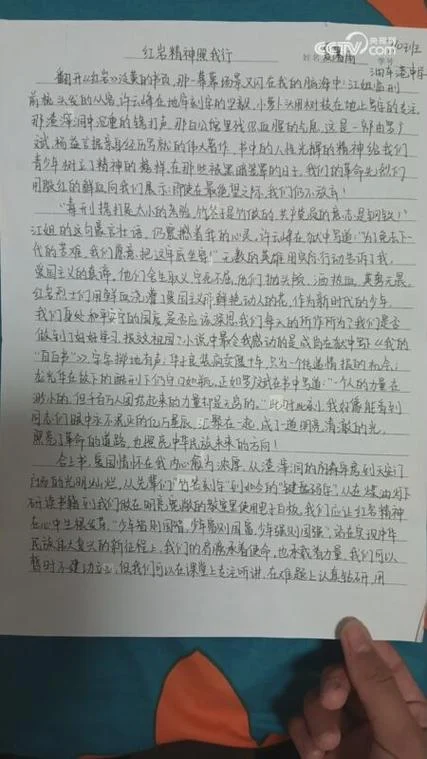 CCTV 央视网
红岩精神照我行
姓名
学号
翻开《红岩》泛黄的书页,那一幕幕场景又闪在我的脑海中:江姐临刑
前梳头发的从容,许云峰在地牢刻字的坚毅,小萝卜头用树枝在地上写字的专注,
那渣滓洞中沉重的镣打声,那白公馆里残留血腥的气息,这是一部由罗广
斌、杨益言根据亲身经历写就的伟大著作,书中的人性光辉的精神给我们
青少年树立了精神的榜样,在那些被黑暗笼罩的日子,我们的革命先烈们
用殷红的鲜血向我们展示:即使在最绝望之际,我们仍不放弃!
"毒刑拷打是太小的考验,竹签子是竹做的,共产党员的意志是钢铁!"
江姐的这句豪言壮语,仍震撼着我的心灵,许云峰在狱中写道:"为了免去下一
代的苦难,我们愿意,把这牢底坐穿!"无数的英雄用实际行动告诉了我,
爱国主义的真谛,他们舍生取义,宁死不屈,他们抛头颅,洒热血,英勇无畏,
红岩烈士们用鲜血浇灌了爱国主义那鲜艳动人的花,作为新时代的少年,
我们身处和平安宁的国度,是否应该深思:我们每天的所作所为?我们是否
做到了好好学习,报效祖国?小说中最令我感动的是成岗在狱中写下《我的
"自白书"》,字字掷地有声;华子良装疯卖傻十年,只为一个传递情报的机会;
龙光华在敌下的酷刑下仍守口如瓶,正如罗广斌在书中写道:"一个人的力量是
渺小的,但千百万人团结起来的力量却是无穷的。"此时此刻,我好像能看到
同志们眼中永不熄灭的亿万星辰,汇聚在一起,成了一道明亮清澈的光,
照亮了革命的道路,也照亮中华民族未来的方向!
合上书,爱国情怀在我内心愈为浓厚,从渣滓洞的阴森牢房到天安门
广场的光明灿烂,从先辈们"竹签刻字"到如今的"键盘码字",从在煤油灯下
研读书籍到我们做在明亮宽敞的教室里使用电子白板,我们应让红岩精神
在心中生根发芽,"少年智则国智,少年富则国富,少年强则国强",站在实现中华
民族伟大复兴的新征程上,我们的肩膀承着使命,也承载着力量,我们可以
暂时不建功立业,但我们可以在课堂上专注听讲,在难题上认真钻研,用